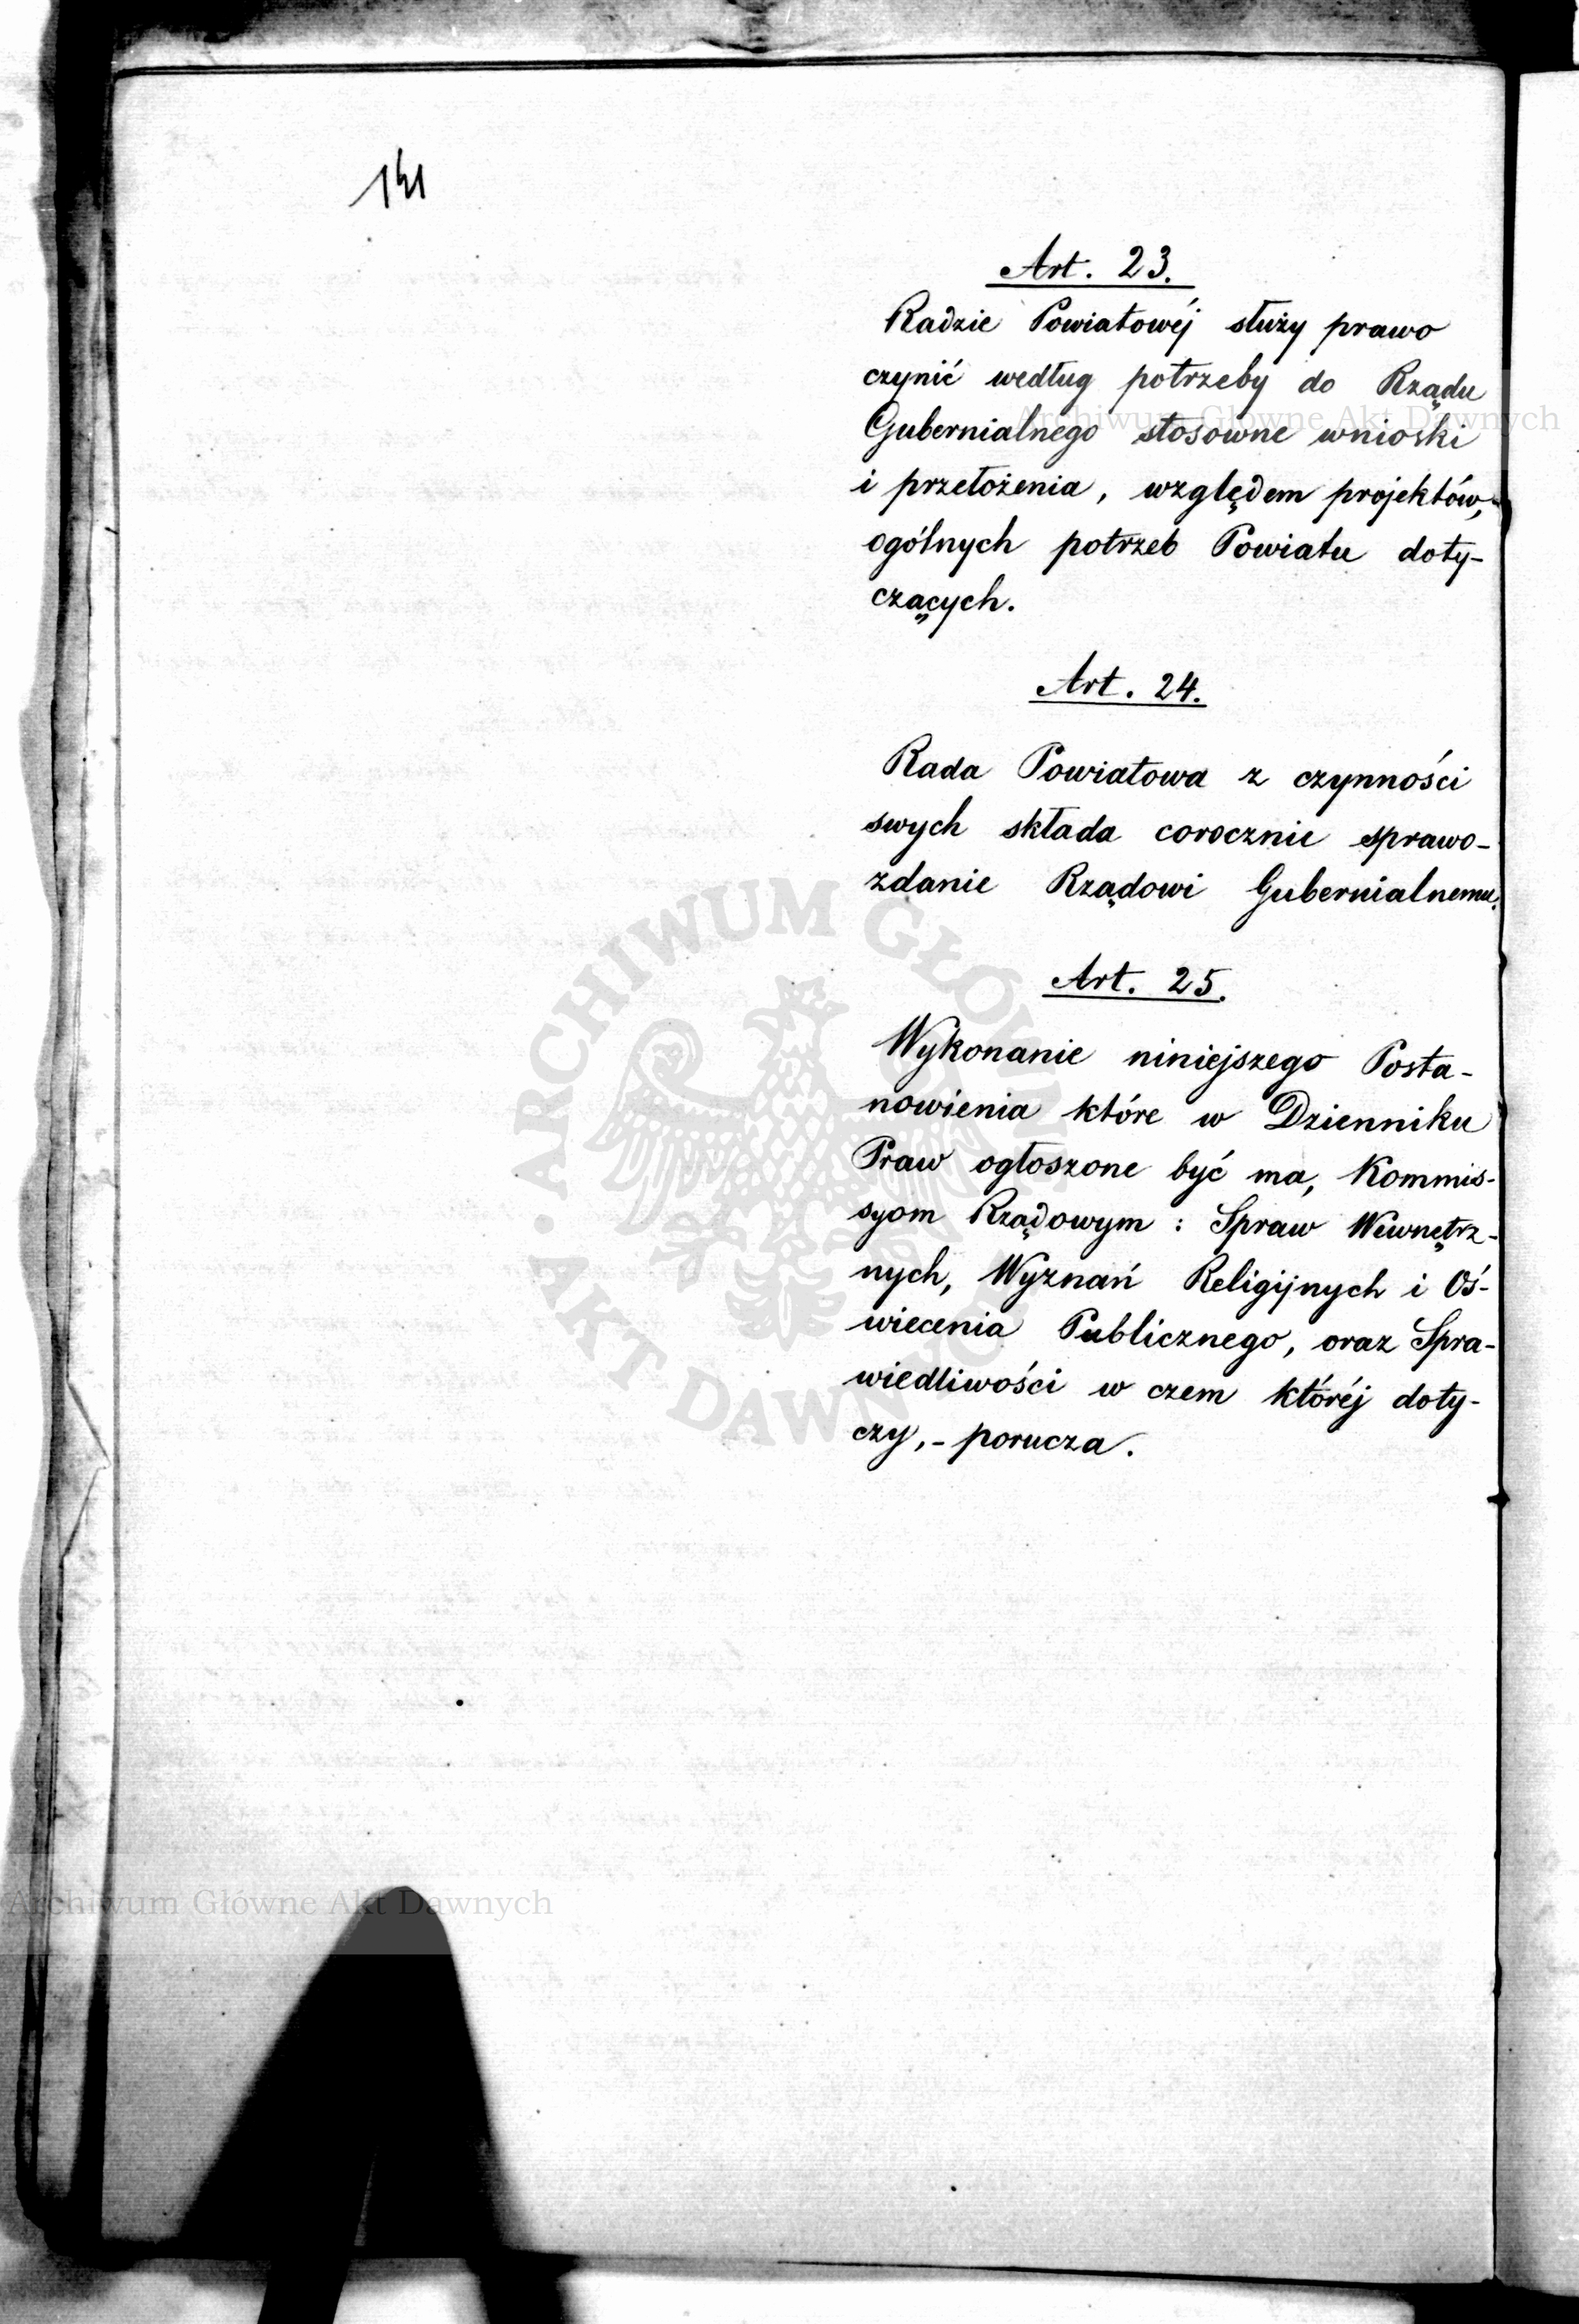 141
Art. 23.
Radzie Powiatowéj służy prawo
czynić według potrzeby do Rządu
Gubernialnego stosowne wnioski
i przełożenia, względem projektów,
ogólnych potrzeb Powiatu doty-
czących.
Art. 24.
Rada Powiatowa z czynności
swych składa corocznie sprawo-
zdanie Rządowi Gubernialnemu.
Art. 25.
Wykonanie niniejszego Posta-
nowienia które w Dzienniku
Praw ogłoszone być ma, Kommis-
syom Rządowym: Spraw Wewnętrz-
nych, Wyznań Religijnych i Oś-
wiecenia Publicznego, oraz Spra-
wiedliwości w czem któréj doty-
czy,- porucza.
Archiwum Główne Akt Dawnych
ARCHIWUM GŁÓWNE AKT DAWNYCH
Archiwum Główne Akt Dawnych